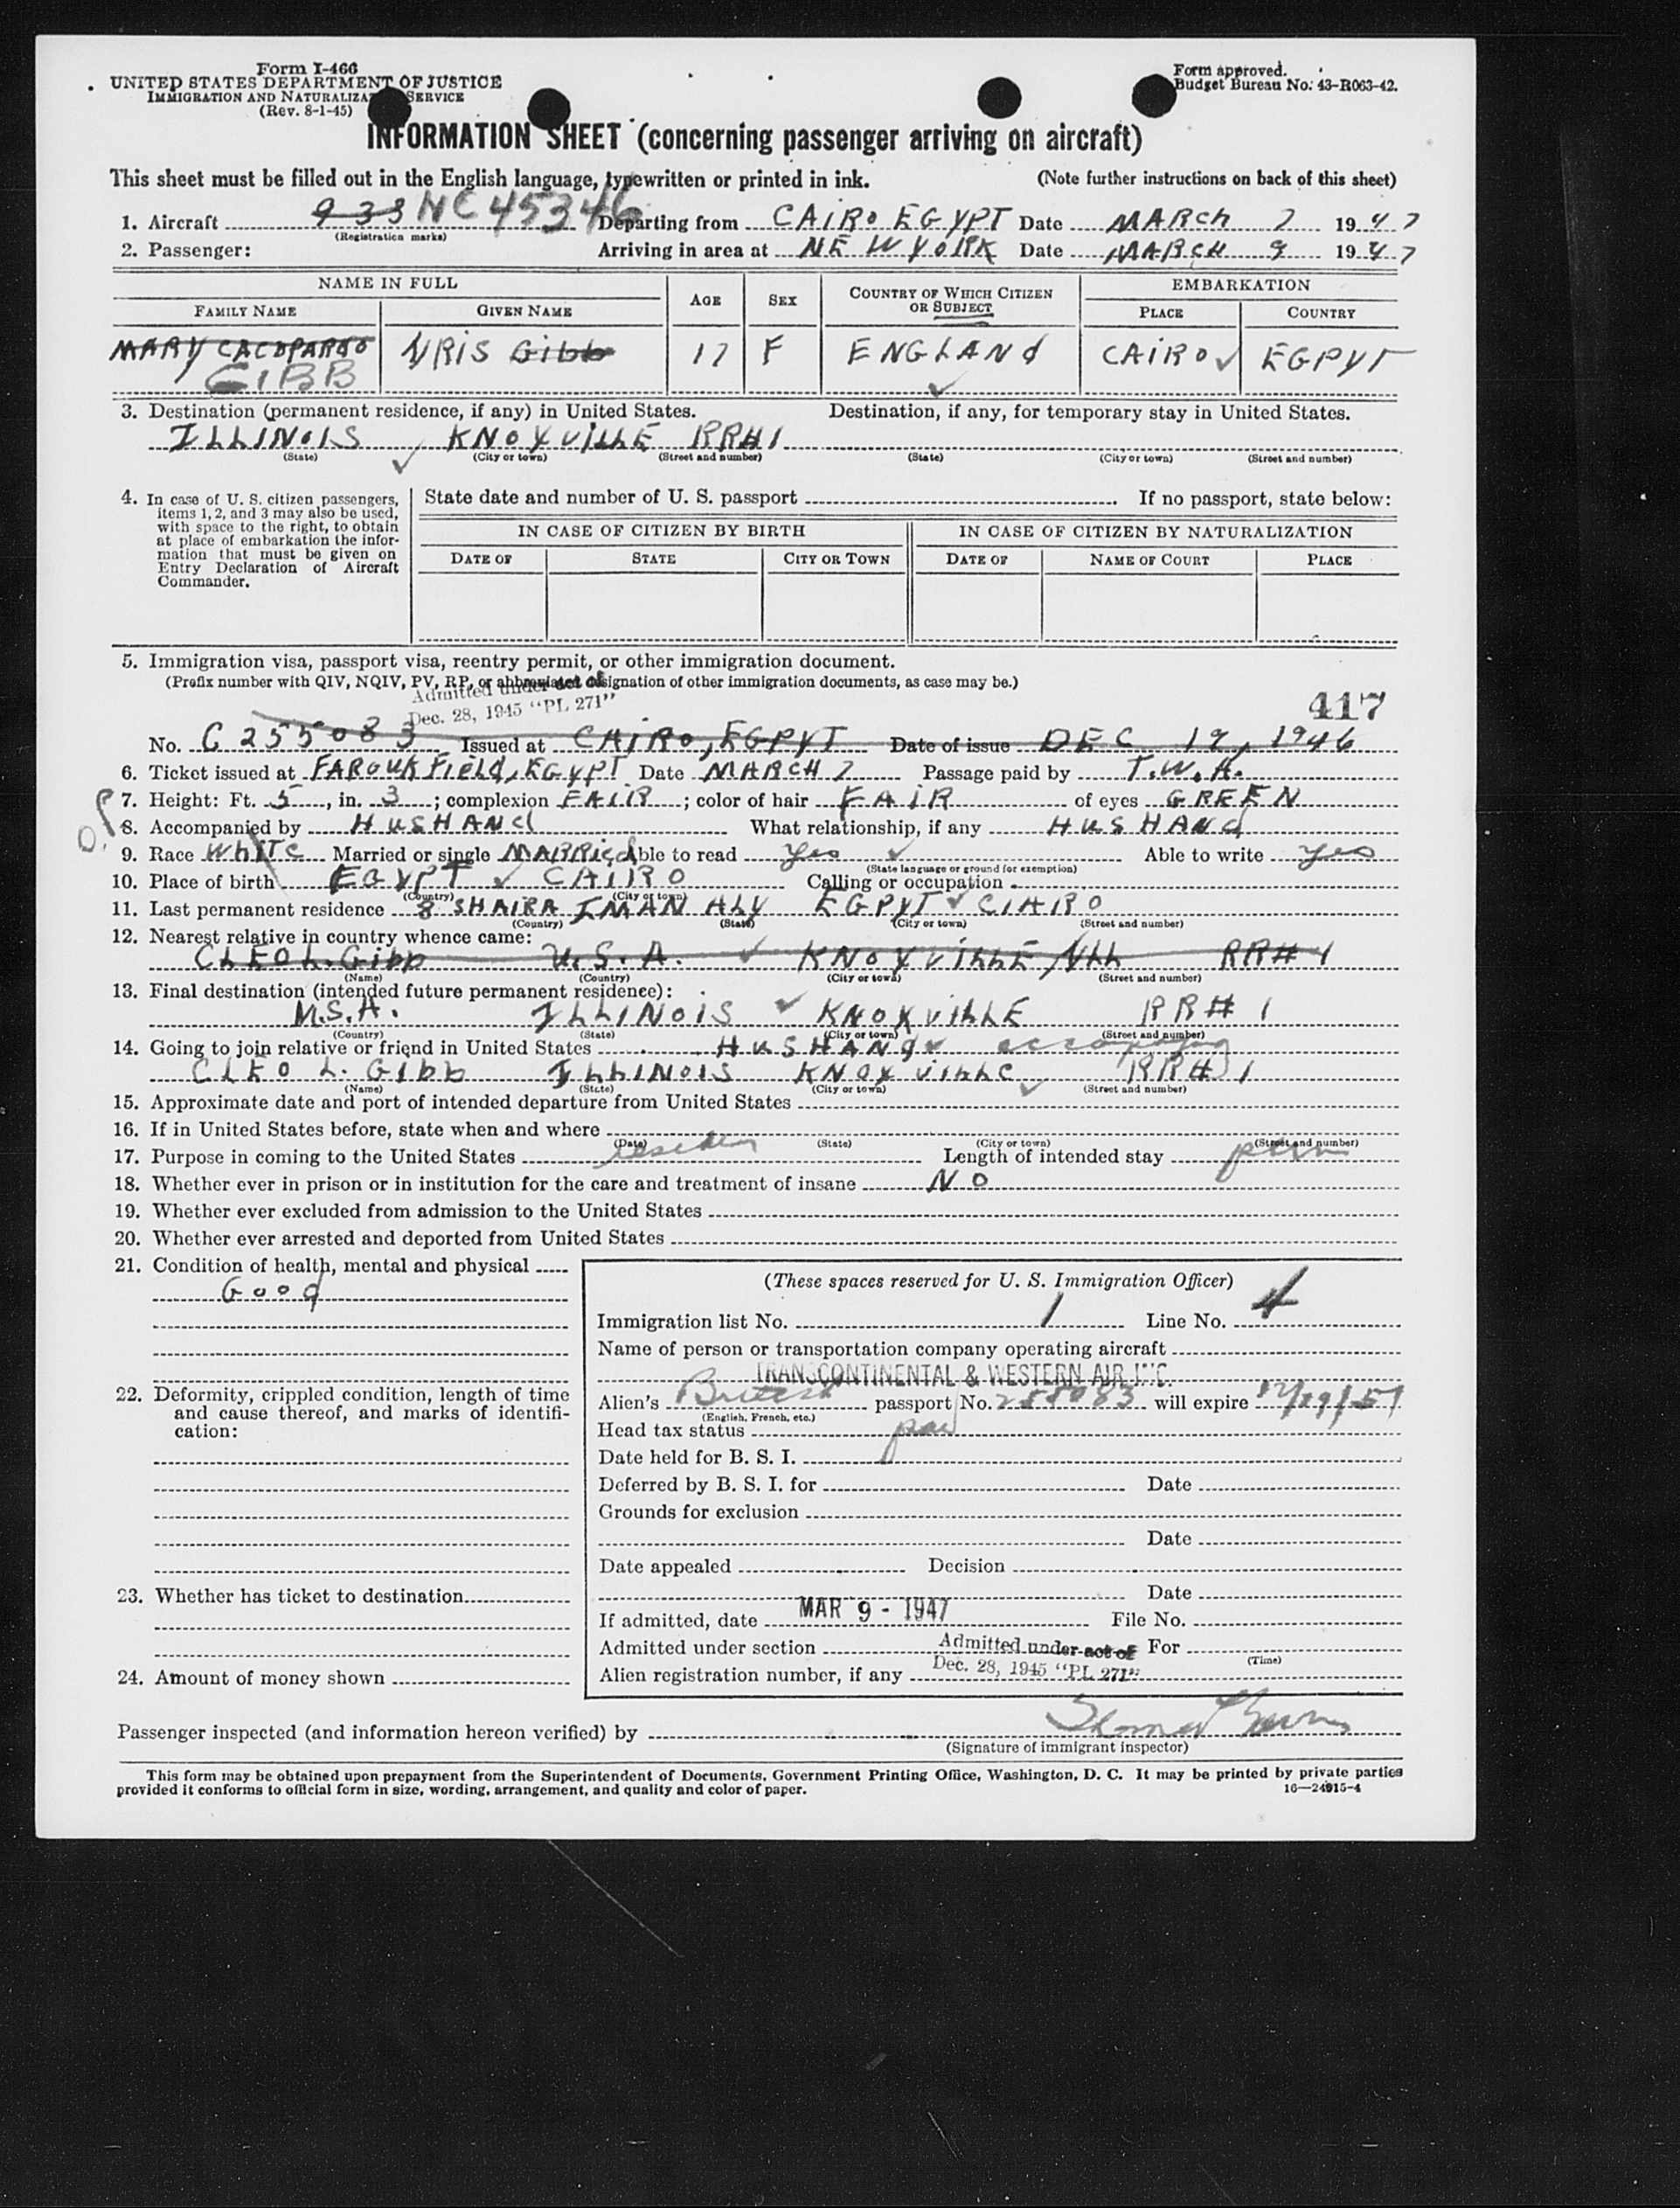 Form I-466
UNITED STATES DEPARTMENT OF JUSTICE
IMMIGRATION AND NATURALIZATION SERVICE
(Rev. 8-1-45)
Form approved.
Budget Bureau No. 43-R063-42.
INFORMATION SHEET (concerning passenger arriving on aircraft)
This sheet must be filled out in the English language, typewritten or printed in ink. (Note further instructions on back of this sheet)
1. Aircraft 933 NC 45346 Departing from CAIRO EGYPT Date MARCH 7 1947
(Registration marks)
2. Passenger: Arriving in area at NEW YORK Date MARCH 9 1947
NAME IN FULL AGE SEX COUNTRY OF WHICH CITIZEN OR SUBJECT EMBARKATION
FAMILY NAME GIVEN NAME PLACE COUNTRY
MARY CACOPARDO IRIS Gibb 17 F ENGLAND CAIRO EGPYT
GIBB
3. Destination (permanent residence, if any) in United States. Destination, if any, for temporary stay in United States.
ILLINOIS KNOXVILLE RR#1
(State) (City or town) (Street and number) (State) (City or town) (Street and number)
4. In case of U. S. citizen passengers, items 1, 2, and 3 may also be used, with space to the right, to obtain at place of embarkation the information that must be given on Entry Declaration of Aircraft Commander.
State date and number of U. S. passport If no passport, state below:
IN CASE OF CITIZEN BY BIRTH IN CASE OF CITIZEN BY NATURALIZATION
DATE OF STATE CITY OR TOWN DATE OF NAME OF COURT PLACE
5. Immigration visa, passport visa, reentry permit, or other immigration document.
(Prefix number with QIV, NQIV, PV, RP, or abbreviated designation of other immigration documents, as case may be.)
Admitted under act of
Dec. 28, 1945 "PL 271"
417
No. C 255083 Issued at CAIRO, EGPYT Date of issue DEC 19, 1946
6. Ticket issued at FAROUK FIELD, EGYPT Date MARCH 7 Passage paid by T.W.A.
7. Height: Ft. 5, in. 3; complexion FAIR; color of hair FAIR of eyes GREEN
8. Accompanied by HUSHAND What relationship, if any HUSHAND
9. Race White Married or single MARRIED Able to read yes Able to write yes
(State language or ground for exemption)
10. Place of birth EGYPT CAIRO Calling or occupation
(Country) (City or town)
11. Last permanent residence 8 SHAIRA IMAN ALY EGPYT CIARO
(Country) (State) (City or town) (Street and number)
12. Nearest relative in country whence came:
CLEO L. Gibb U.S.A. KNOXVILLE, Ill RR#1
(Name) (Country) (City or town) (Street and number)
13. Final destination (intended future permanent residence):
U.S.A. ILLINOIS KNOXVILLE RR#1
(Country) (State) (City or town) (Street and number)
14. Going to join relative or friend in United States HUSHAND accompany
CLEO L. Gibb ILLINOIS KNOXVILLE RR#1
(Name) (State) (City or town) (Street and number)
15. Approximate date and port of intended departure from United States
16. If in United States before, state when and where
(Date) (State) (City or town) (Street and number)
17. Purpose in coming to the United States Length of intended stay perm
18. Whether ever in prison or in institution for the care and treatment of insane NO
19. Whether ever excluded from admission to the United States
20. Whether ever arrested and deported from United States
21. Condition of health, mental and physical
Good
22. Deformity, crippled condition, length of time and cause thereof, and marks of identification:
23. Whether has ticket to destination
24. Amount of money shown
(These spaces reserved for U. S. Immigration Officer)
Immigration list No. 1 Line No. 4
Name of person or transportation company operating aircraft
TRANSCONTINENTAL & WESTERN AIR INC.
Alien's British passport No. 255083 will expire 12/19/51
(English, French, etc.)
Head tax status
Date held for B. S. I.
Deferred by B. S. I. for Date
Grounds for exclusion
Date
Date appealed Decision
Date
If admitted, date MAR 9 - 1947 File No.
Admitted under section Admitted under act of For
(Time)
Alien registration number, if any Dec. 28, 1945 "PL 271"
Passenger inspected (and information hereon verified) by
(Signature of immigrant inspector)
This form may be obtained upon prepayment from the Superintendent of Documents, Government Printing Office, Washington, D. C. It may be printed by private parties
provided it conforms to official form in size, wording, arrangement, and quality and color of paper. 16—24915-4